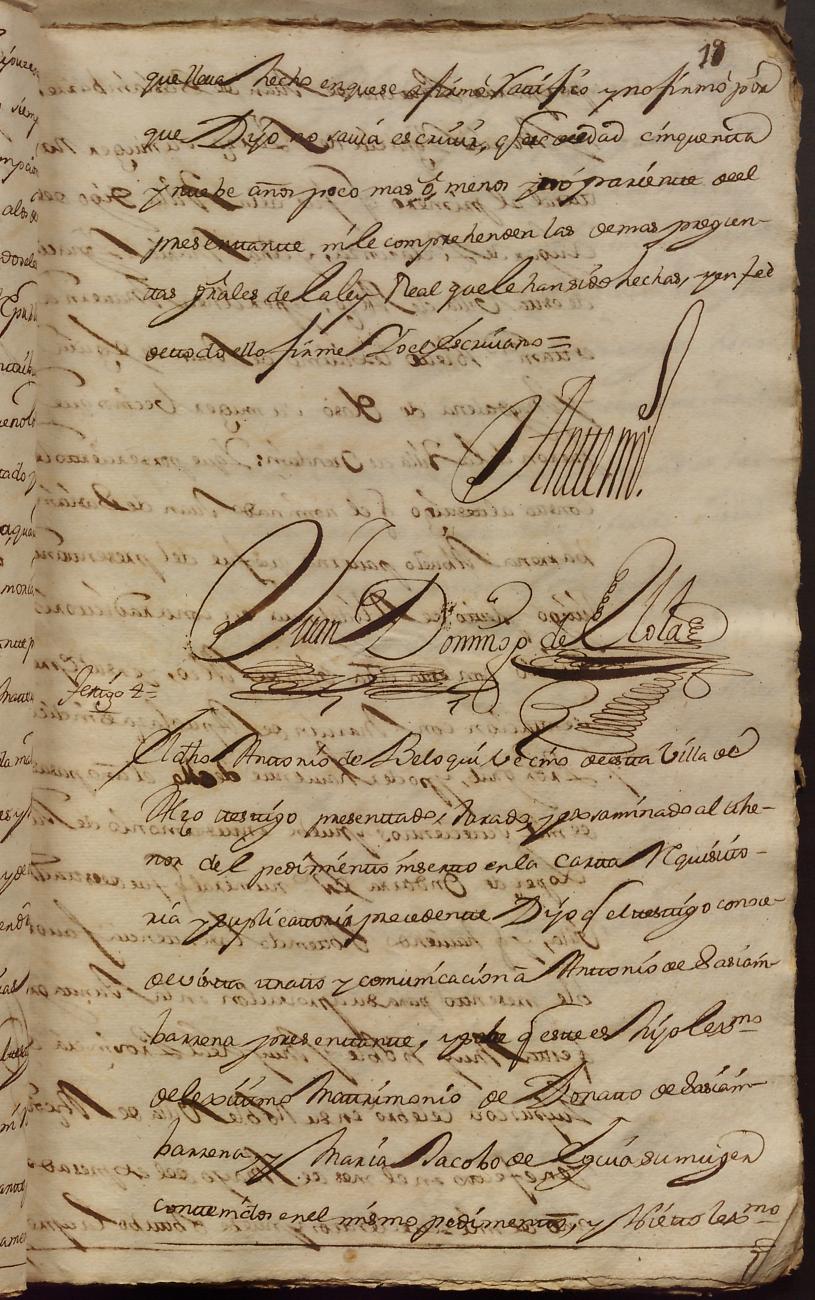 18
que lleva hecho en que se afirmó ratificó y no firmó por
que Dijo no savia escrivir, q̃ es de edad cinquenta
y nuebe años poco mas ô menos y no pariente de el
presentante ni le comprehenden las demas pregun-
tas g̃rales de la ley Real que le han sido hechas, y en fee
de todo ello firme Yo el escrivano =
Antemi
Juan Domingo de
Testigo 4 =
El dho Antonio de Beloqui vecino de esta Villa de
testigo presentado, Jurado, y examinado al the-
nor del pedimento inserto en la carta Requisito-
ria y suplicatoria precedente Dijo q̃ el testigo conoce
de vista trato y comunicacion â Antonio de
barrena presentante, y save q̃ este es hijo lexmo
de lexitimo Matrimonio de Donato de
barrena y Maria Jacobo de Eguia su muger
contenidos en el mismo pedimento, y Nieto lexmo